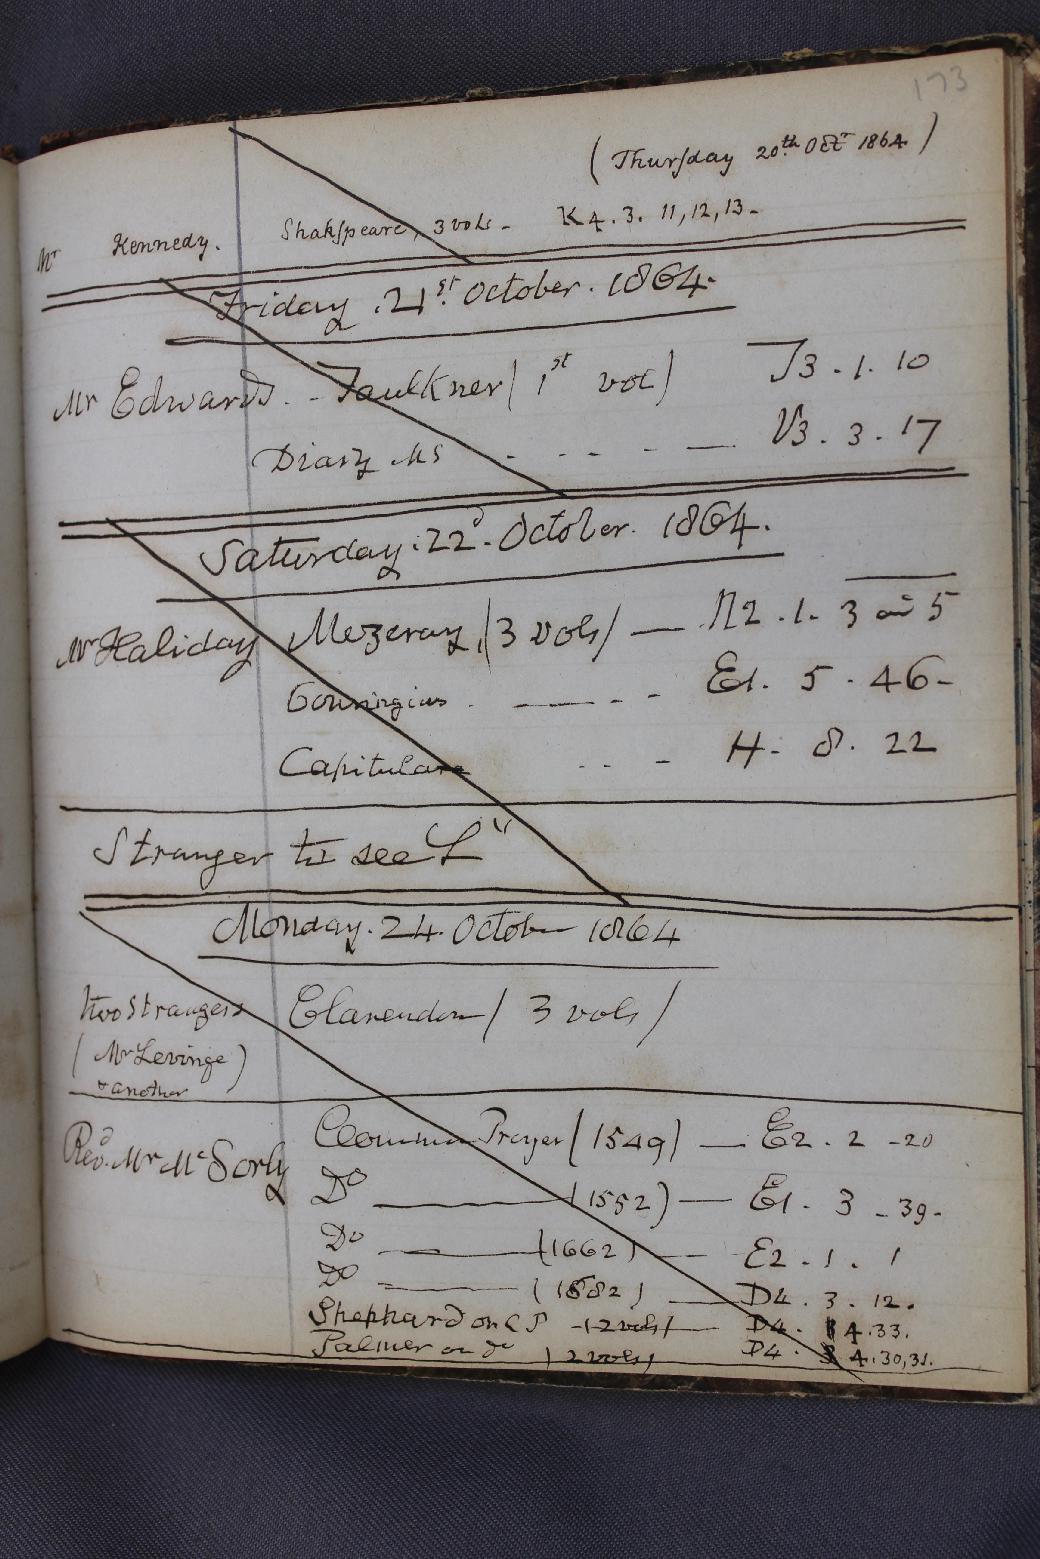 173
(Thursday 20th Oct 1864)
Mr Kennedy. Shakspeare, 3 vols - K4.3. 11,12,13-
Friday .21st October. 1864.
Mr Edwards. - Faulkner (1st vol) J3.1.10
Diary MS - . - - - — V3.3.17
Saturday. 22d. October. 1864.
Mr Haliday Mezeray, (3 vols) — N2.1. 3 a 5
E1. 5. 46-
Capitulare . . - H- 8. 22
Stranger to see L"
Monday. 24. October 1864
two Strangers Clarendon (3 vols)
(Mr Levinge)
& another
Common Prayer (1549) — E2. 2 -20
Revd. Mr McSorly
Do — (1552) — E1. 3 - 39-
Do — (1662) — E2. 1. 1
Do — (1882) — D4. 3. 12.
Shephard on CP - (2 vols) — D4. 4.33.
Palmer on do (2 vols) D4. 4.30,31.